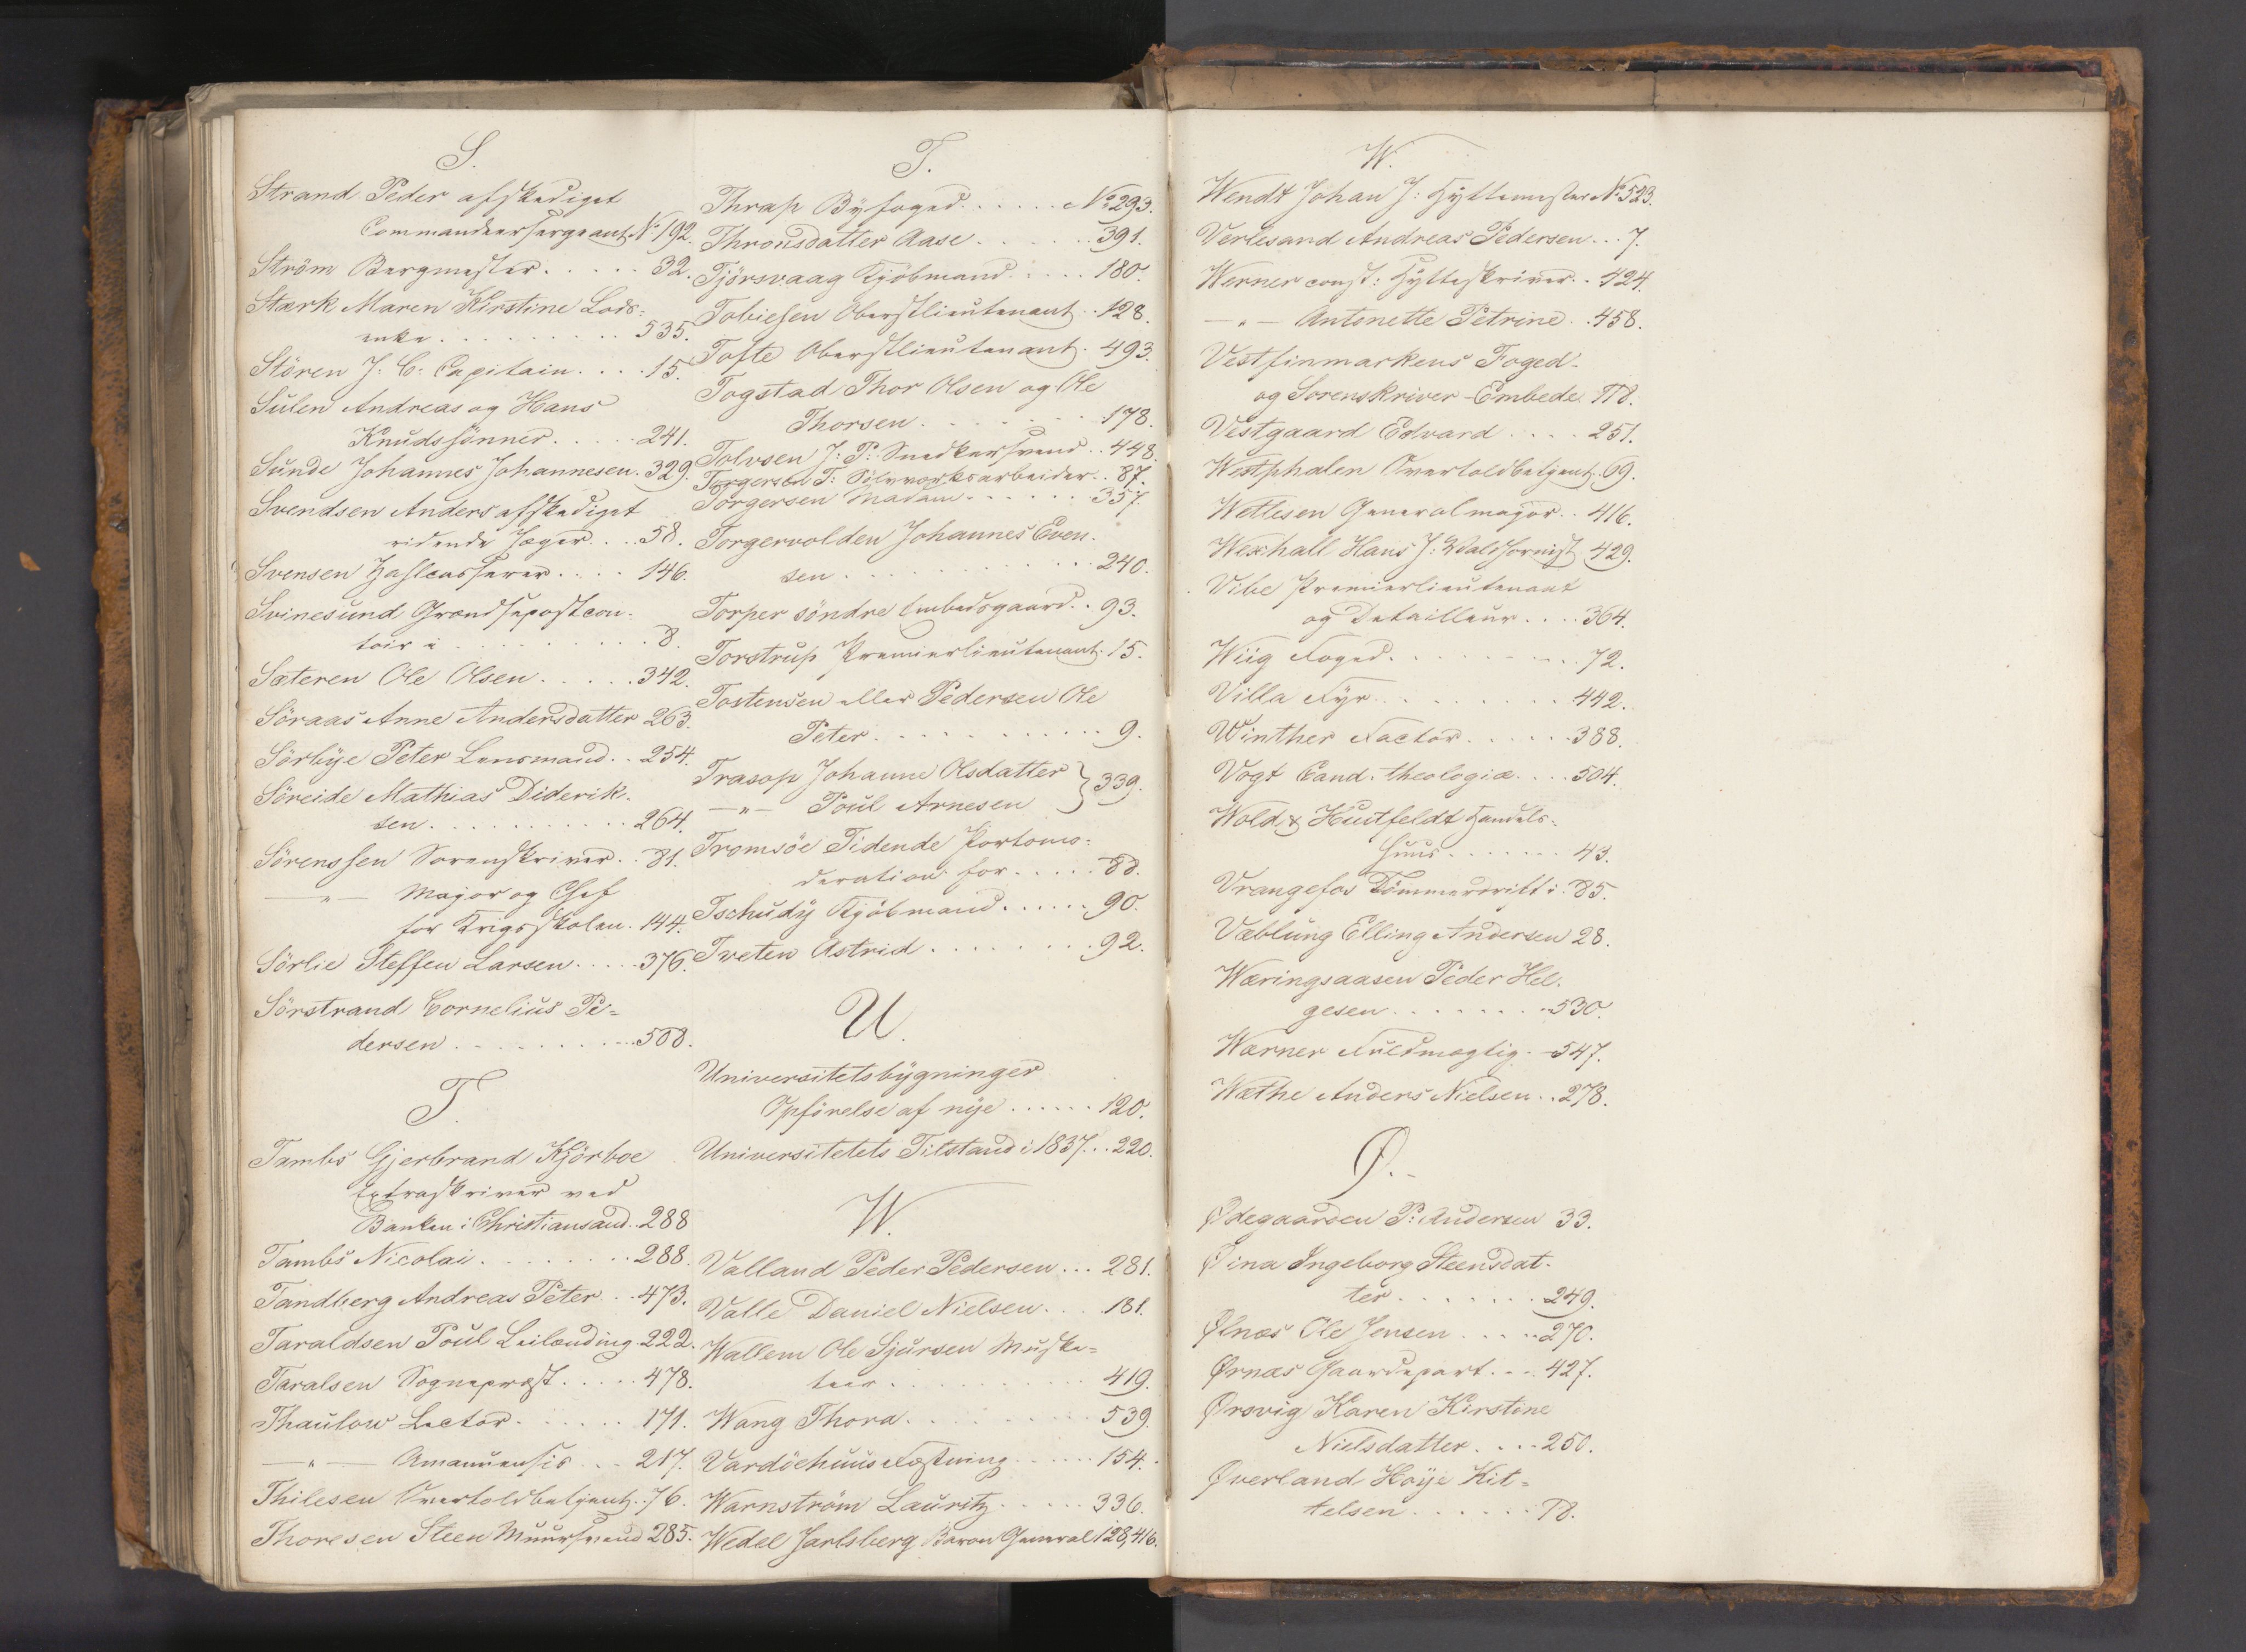 S.
Strand Peder afskediget
Commandeersergeant No 192.
Ström Bergmester . . . . . 32.
Stærk Maren Kirstine Lods-
enke . . . . . . . . . 535.
Stören J: C: Capitain . . . . 15.
Sulen Andreas og Hans
Knudssønner . . . . . 241.
Sunde Johannes Johannesen . 329.
Svendsen Anders afskediget
ridende Jæger . . . 58.
Svensen . . . . 146.
Svinesund Grændsepostcon-
toir i . . . . . . . . . 8.
Sæteren Ole Olsen . . . . . 342.
Söraas Anne Andersdatter 263.
Sörbye Peter Lensmand . . 254.
Söreide Mathias Diderik-
sen . . . . . . . . . . 264.
Sörenssen Sorenskriver . . 81.
— " — Major og Chef
for Krigsskolen . 144.
Sörlie Steffen Larsen . . . . . 376.
Sörstrand Cornelius Pe-
dersen . . . . . . . . . . 508.
T.
Tambs Gjerbrand Kjörboe
Extraskriver ved
Banken i Christiansand . . 288
Tambs Nicolai . . . . . . . . 288.
Tandberg Andreas Peter . . . 473.
Taraldsen Poul Leilænding . 222.
Taralsen Sognepræst . . . . . 478.
Thaulow Lector . . . . . . 171.
— " — Amanuensis . . . 217.
Thilesen Overtoldbetjent . . 76.
Thoresen Steen Muursvend 285.
T.
Thrap Byfoged . . . . . . No 293.
Thronsdatter Aase . . . . . . . 391.
Tjörsvaag Kjöbmand . . . . . 180.
Tobiesen Oberstlieutenant . . 128.
Tofte Oberstlieutenant . 493.
Togstad Thor Olsen og Ole
Thorsen . . . . . . . . 178.
Tolvsen J: P: Snedkersvend . . 448.
Torgersen T: Sölvværksarbeider . . 87.
Torgersen Madam . . . . . . 357.
Torgervolden Johannes Even-
sen . . . . . . . . . . . . 240.
Torper söndre Embedsgaard . . 93.
Torstrup Premierlieutenant . 15.
Tostensen eller Pedersen Ole
Peter . . . . . . . . . . . . 9.
Trasop Johanne Olsdatter } 339.
— " — Poul Arnesen
Tromsöe Tidende Portomo-
deration for . . . . . 88.
Tschudy Kjöbmand . . . . . . 90.
Tveten Astrid . . . . . . . . 92.
U.
Universitetsbygninger
Opförelse af nye . . . . . . 120.
Universitetets Tilstand i 1837 . . . 220.
W.
Valland Peder Pedersen . . . 281.
Valle Daniel Nielsen . . . . 181.
Wallem Ole Sjursen Muske-
teer . . . . . . . . . . . 419.
Wang Thora . . . . . . . . . 539.
Vardöehuus Fæstning . . . . . . 154.
Warnström Lauritz . . . . . 336.
Wedel Jarlsberg Baron General 128, 416.
W.
Wendt Johan J: Hyttemester No 523.
Verlesand Andreas Pedersen . . . 7.
Werner const: Hytteskriver . . 424.
— " — Antonette Petrine . . 458.
Vestfinmarkens Foged-
og Sorenskriver-Embede 778.
Vestgaard Edvard . . . . 251.
Westphalen Overtoldbetjent . 69.
Wetlesen Generalmajor . . 416.
Wexhall Hans J: Waldhornist 429.
Vibe Premierlieutenant
og Detailleur . . . . 364.
Wiig Foged . . . . . . . . . 72.
Villa Fyr . . . . . . . . . . 442.
Winther Factor . . . . . . 388.
Vogt Cand. theologiæ . . . . 504.
Wold & Huitfeldt Handels-
huus . . . . . . . 43.
Vrangefos Tömmerdrift i . 85.
Væblung Elling Andersen 28.
Wæringsaasen Peder Hel-
gesen . . . . . . . . 530.
Wærner Fuldmægtig . . 547.
Wæthe Anders Nielsen . . 278.
Ø.
Ødegaarden P: Andersen 33.
Øina Ingeborg Steensdat-
ter . . . . . . . 249.
Ølnæs Ole Jensen . . . . . 270.
Ørnæs Gaardepart . . . . 427.
Ørsvig Karen Kirstine
Nielsdatter . . . . 250.
Øverland Høye Kit-
telsen . . . . . . 78.